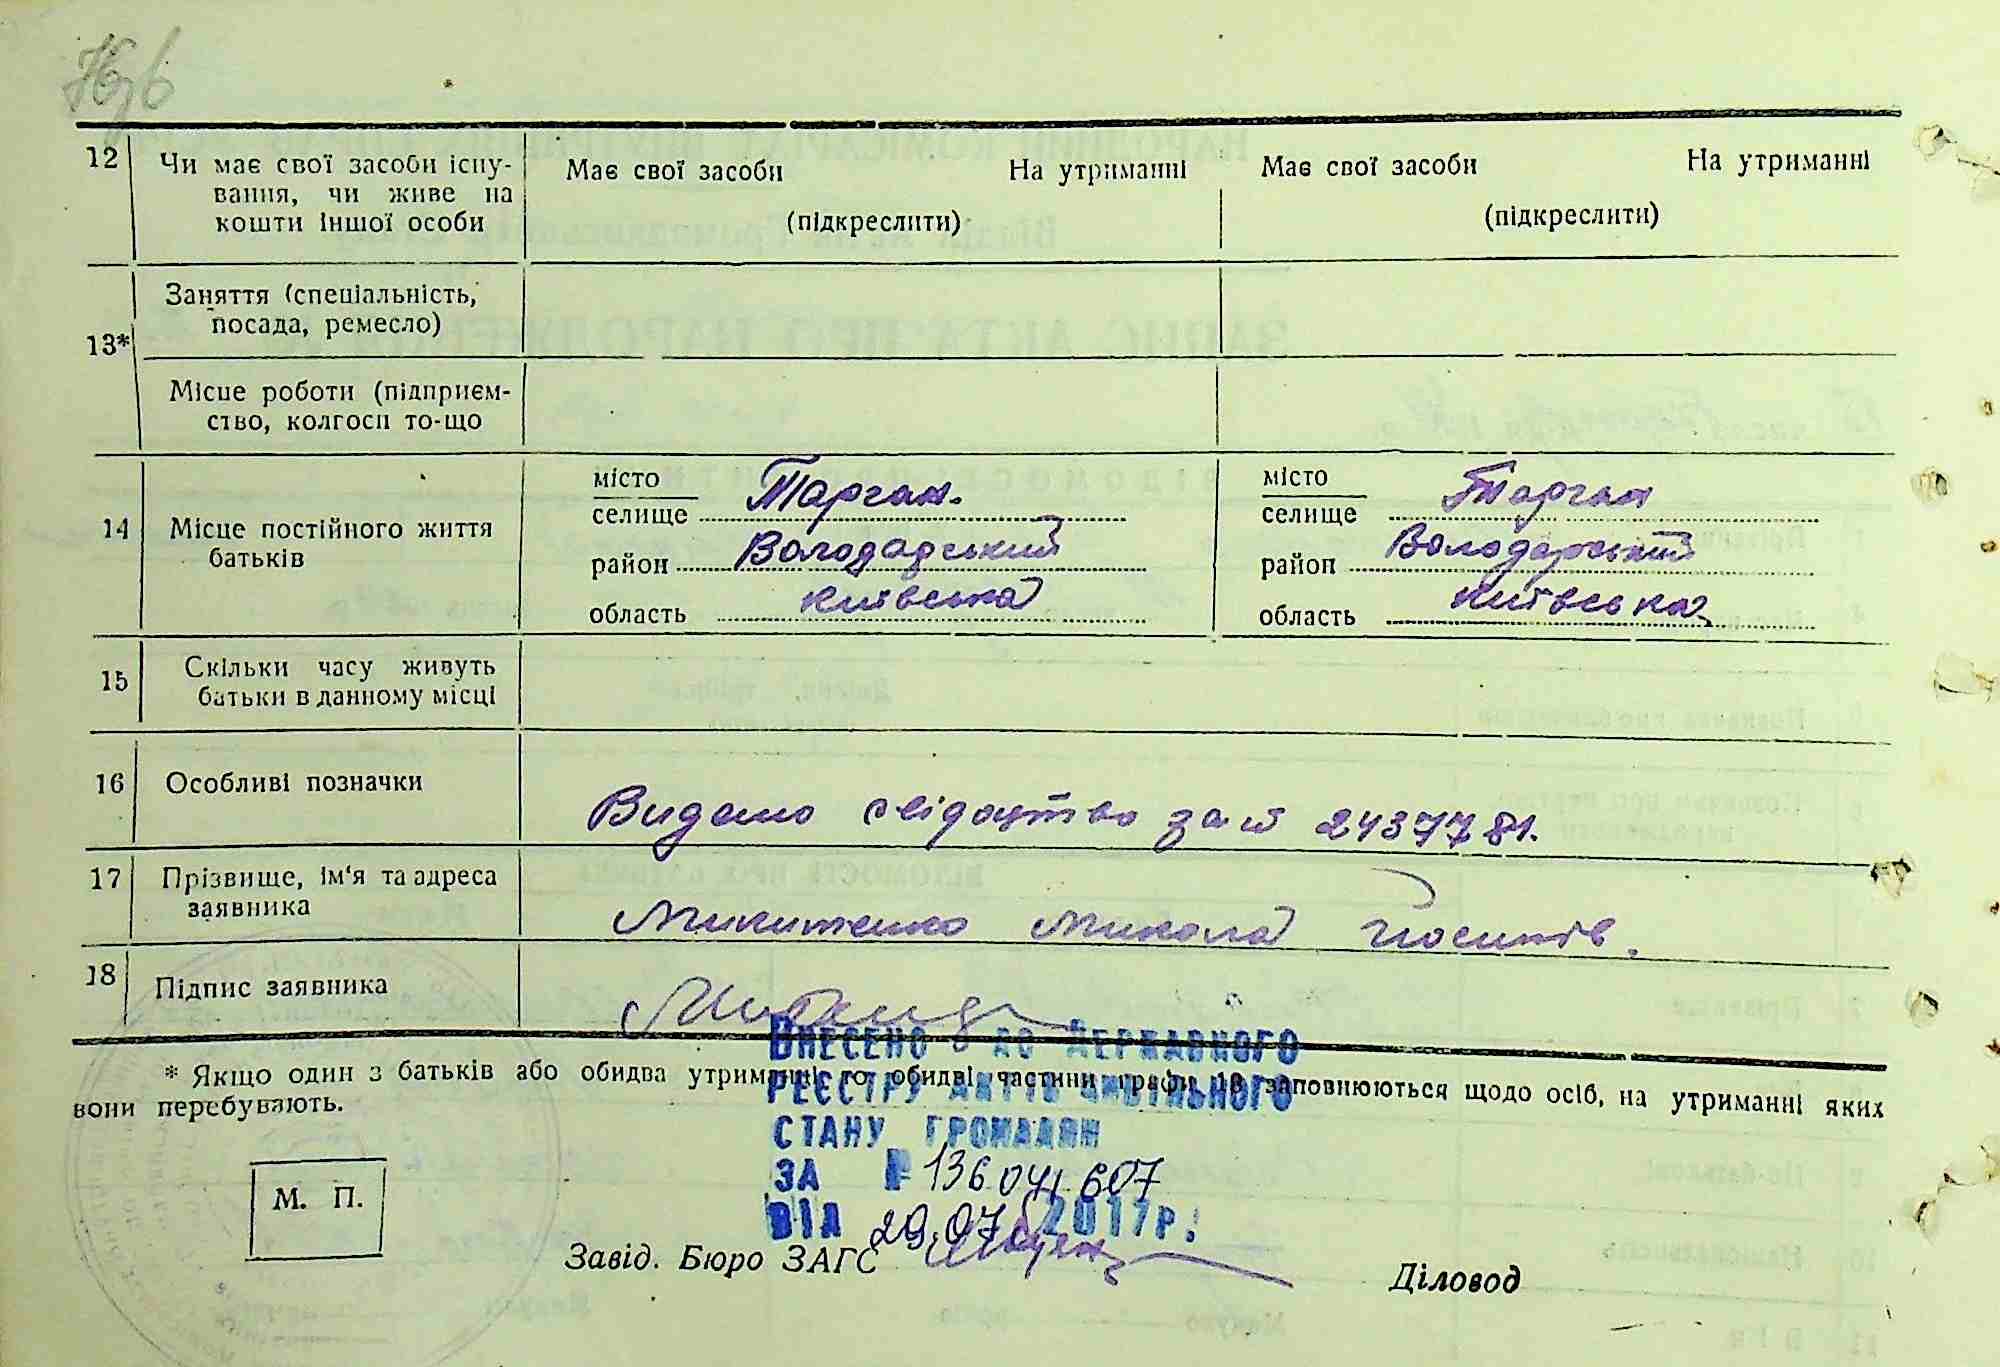 12 Чи має свої засоби існу-
вання, чи живе на
кошти іншої особи
Має свої засоби На утриманні
(підкреслити)
Має свої засоби На утриманні
(підкреслити)
13*
Заняття (спеціальність,
посада, ремесло)
Місце роботи (підприєм-
ство, колгосп то-що
14 Місце постійного життя
батьків
місто
селище Тарган.
район Володарський
область Київська
місто
селище Тарган
район Володарський
область Київська
15 Скільки часу живуть
батьки в данному місці
16 Особливі позначки
Видано свідоцтво за № 2437781.
17 Прізвище, ім'я та адреса
заявника
Микитенко Микола Йосипів.
18 Підпис заявника
Внесено до Державного
реєстру актів цивільного
стану громадян
за № 136 041 607
від 29.07 2017р.
* Якщо один з батьків або обидва утриманці то обидві частини графи 13 заповнюються щодо осіб, на утриманні яких
вони перебувають.
М. П.
Завід. Бюро ЗАГС
Діловод